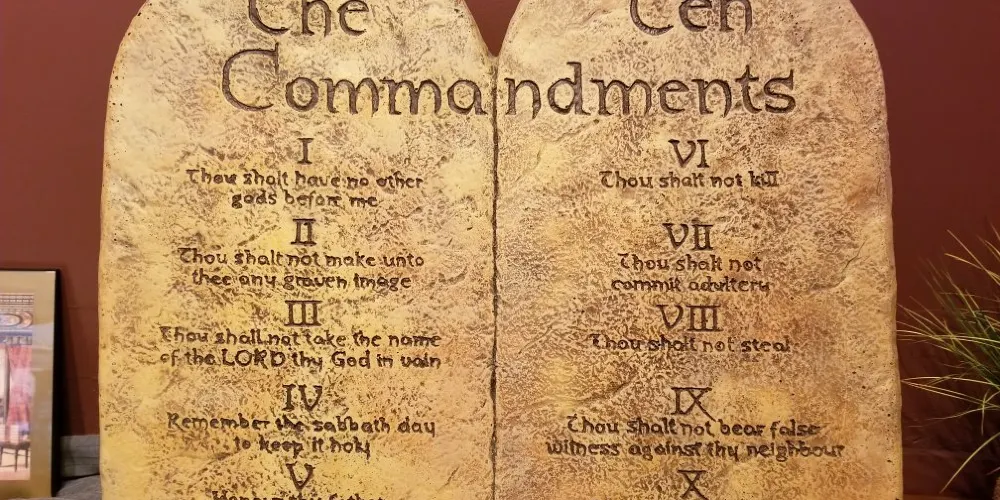 The Ten
Commandments
I
Thou shalt have no other
gods before me
II
Thou shalt not make unto
thee any graven image
III
Thou shall not take the name
of the LORD thy God in vain
IV
Remember the sabbath day
to keep it holy
V
Honour thy father
VI
Thou shalt not kill
VII
Thou shalt not
commit adultery
VIII
Thou shalt not steal
IX
Thou shalt not bear false
witness against thy neighbour
X